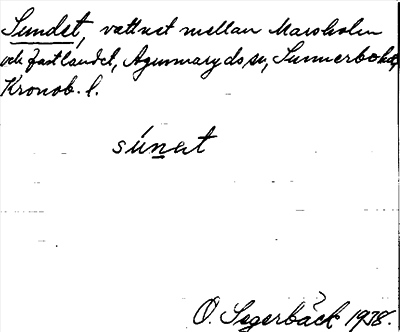 Sundet, vattnet mellan Marsholm
och fastlandet, Agunnaryds sn, Sunnerbo hd,
Kronob. l.
súnet
O. Segerbäck 1938.